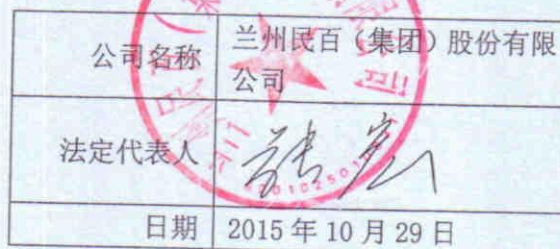 公司名称 兰州民百（集团）股份有限
公司
法定代表人 张宏
日期 2015 年 10 月 29 日